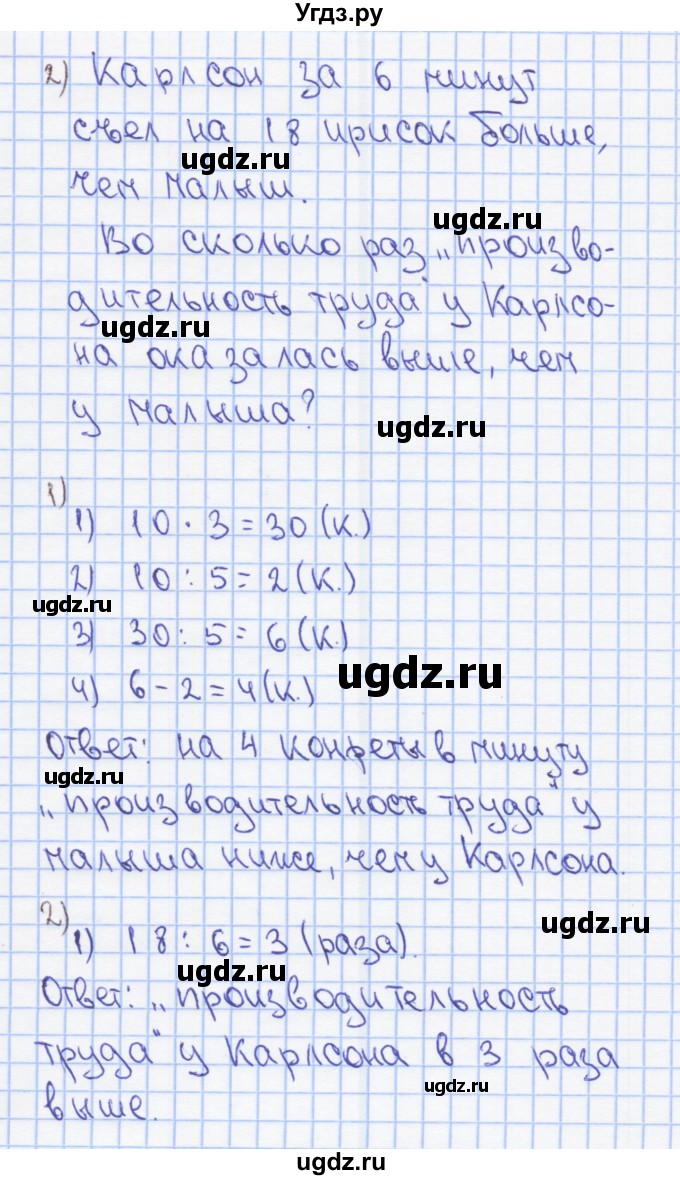 Угдз.ру
2) Карлсон за 6 минут
съел на 18 ирисок больше,
ugdz.ru
чем Малыш.
ugdz.ru
Во сколько раз „произво-
дительность труда" у Карлсо-
ugdz.ru
на оказалась выше, чем
у Малыша?
ugdz.ru
1)
1) 10 · 3 = 30 (к.)
2) 10 : 5 = 2 (к.)
ugdz.ru
3) 30 : 5 = 6 (к.)
ugdz.ru
4) 6 - 2 = 4 (к.)
Ответ: на 4 конфеты в минуту
ugdz.ru
„производительность труда" у
Малыша ниже, чем у Карлсона.
2)
ugdz.ru
1) 18 : 6 = 3 (раза).
ugdz.ru
Ответ: „производительность
труда" у Карлсона в 3 раза
ugdz.ru
выше.
ugdz.ru